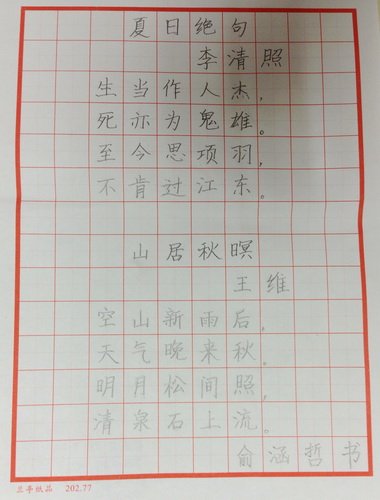 夏日绝句
李清照
生当作人杰，
死亦为鬼雄。
至今思项羽，
不肯过江东。
山居秋暝
王维
空山新雨后，
天气晚来秋。
明月松间照，
清泉石上流。
俞涵哲书
兰亭纸品 202.77